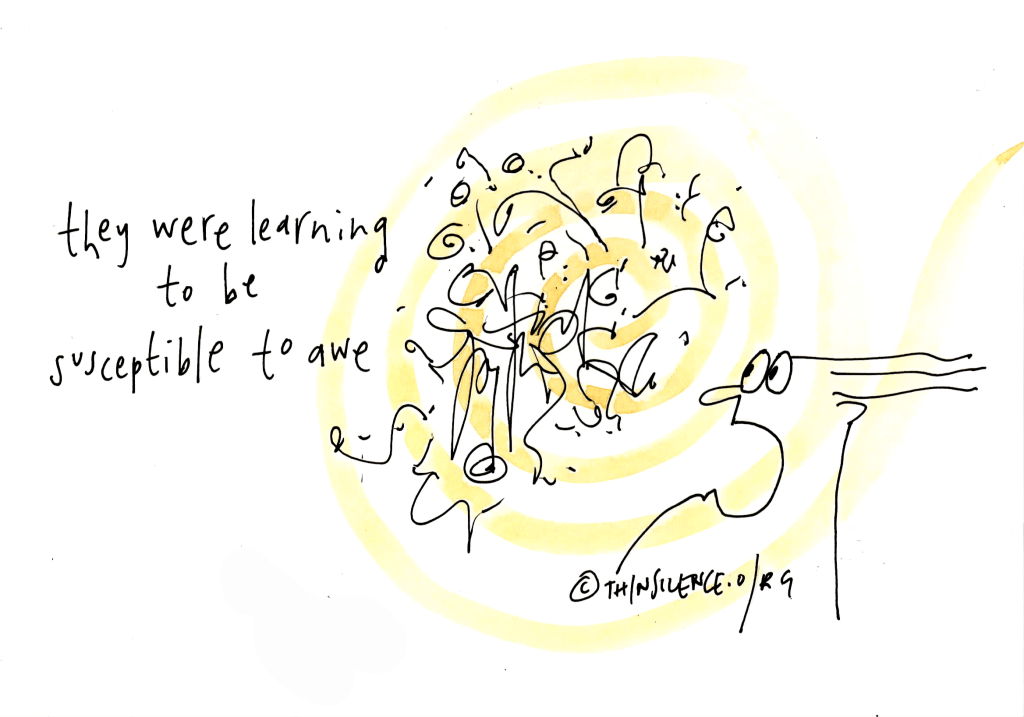 they were learning
to be
susceptible to awe
© THINSILENCE.ORG